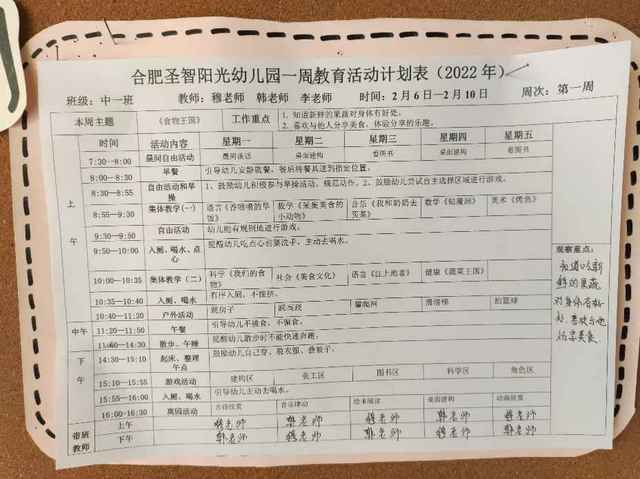 合肥圣智阳光幼儿园一周教育活动计划表（2022年）
班级：中一班 教师：穆老师 韩老师 李老师 时间：2月6日—2月10日 周次：第一周
本周主题 《食物王国》 工作重点 1、知道新鲜的果蔬对身体有好处。
2、喜欢与他人分享美食，体验分享的乐趣。
时间 活动内容 星期一 星期二 星期三 星期四 星期五
上午
7:30—8:00 晨间自由活动 晨间谈话 桌面建构 看图书 桌面建构 看图书
8:00—8:30 早餐 引导幼儿安静就餐，餐后将餐具送到指定位置。
8:30—8:55 自由活动和早操 1、鼓励幼儿积极参与早操活动，规范动作。2、鼓励幼儿尝试自主选择区域进行游戏。
8:55—9:30 集体教学（一） 语言《香喷喷的早饭》 数学《采集美食的小动物》 音乐《我和奶奶去买菜》 数学 美术
9:30—9:50 自由活动 幼儿能有规则地进行游戏。
9:50—10:00 入厕、喝水、点心 提醒幼儿吃点心前要洗手，主动去喝水。
10:00—10:35 集体教学（二） 科学《我们的食物》 社会《美食文化》 语言 健康《蔬菜王国》
10:35—10:40 入厕、喝水 有序入厕，不推挤。
10:40—11:20 户外活动 玩房子 滑滑梯 拍篮球
中午
11:20—11:50 午餐 引导幼儿不挑食，不偏食。
11:50—14:30 散步、午睡 提醒幼儿散步时不能快速奔跑。
下午
14:30—15:10 起床、整理 午点 鼓励幼儿自己穿、脱衣服、叠被子。
15:10—15:55 游戏活动 建构区 美工区 图书区 科学区 角色区
15:55—16:00 入厕、喝水 引导幼儿主动去喝水。
16:00—16:30 离园活动 音乐律动 绘本阅读 桌面建构
带班教师 上午 穆老师 韩老师 穆老师 韩老师 穆老师
下午 韩老师 穆老师 韩老师 穆老师 韩老师
观察重点：
知道吃新
鲜的果蔬
对身体有好
处，喜欢与他
人分享美食